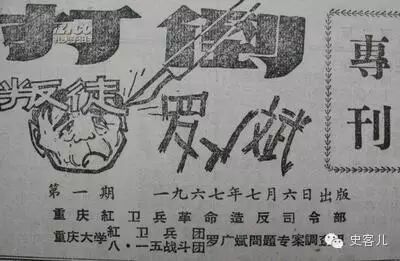 打倒
叛徒
罗广斌
專刊
第一期 一九六七年七月六日出版
重庆紅卫兵革命造反司令部
重庆大学 紅卫兵团
八·一五战斗团 罗广斌問題专案調查
史客儿